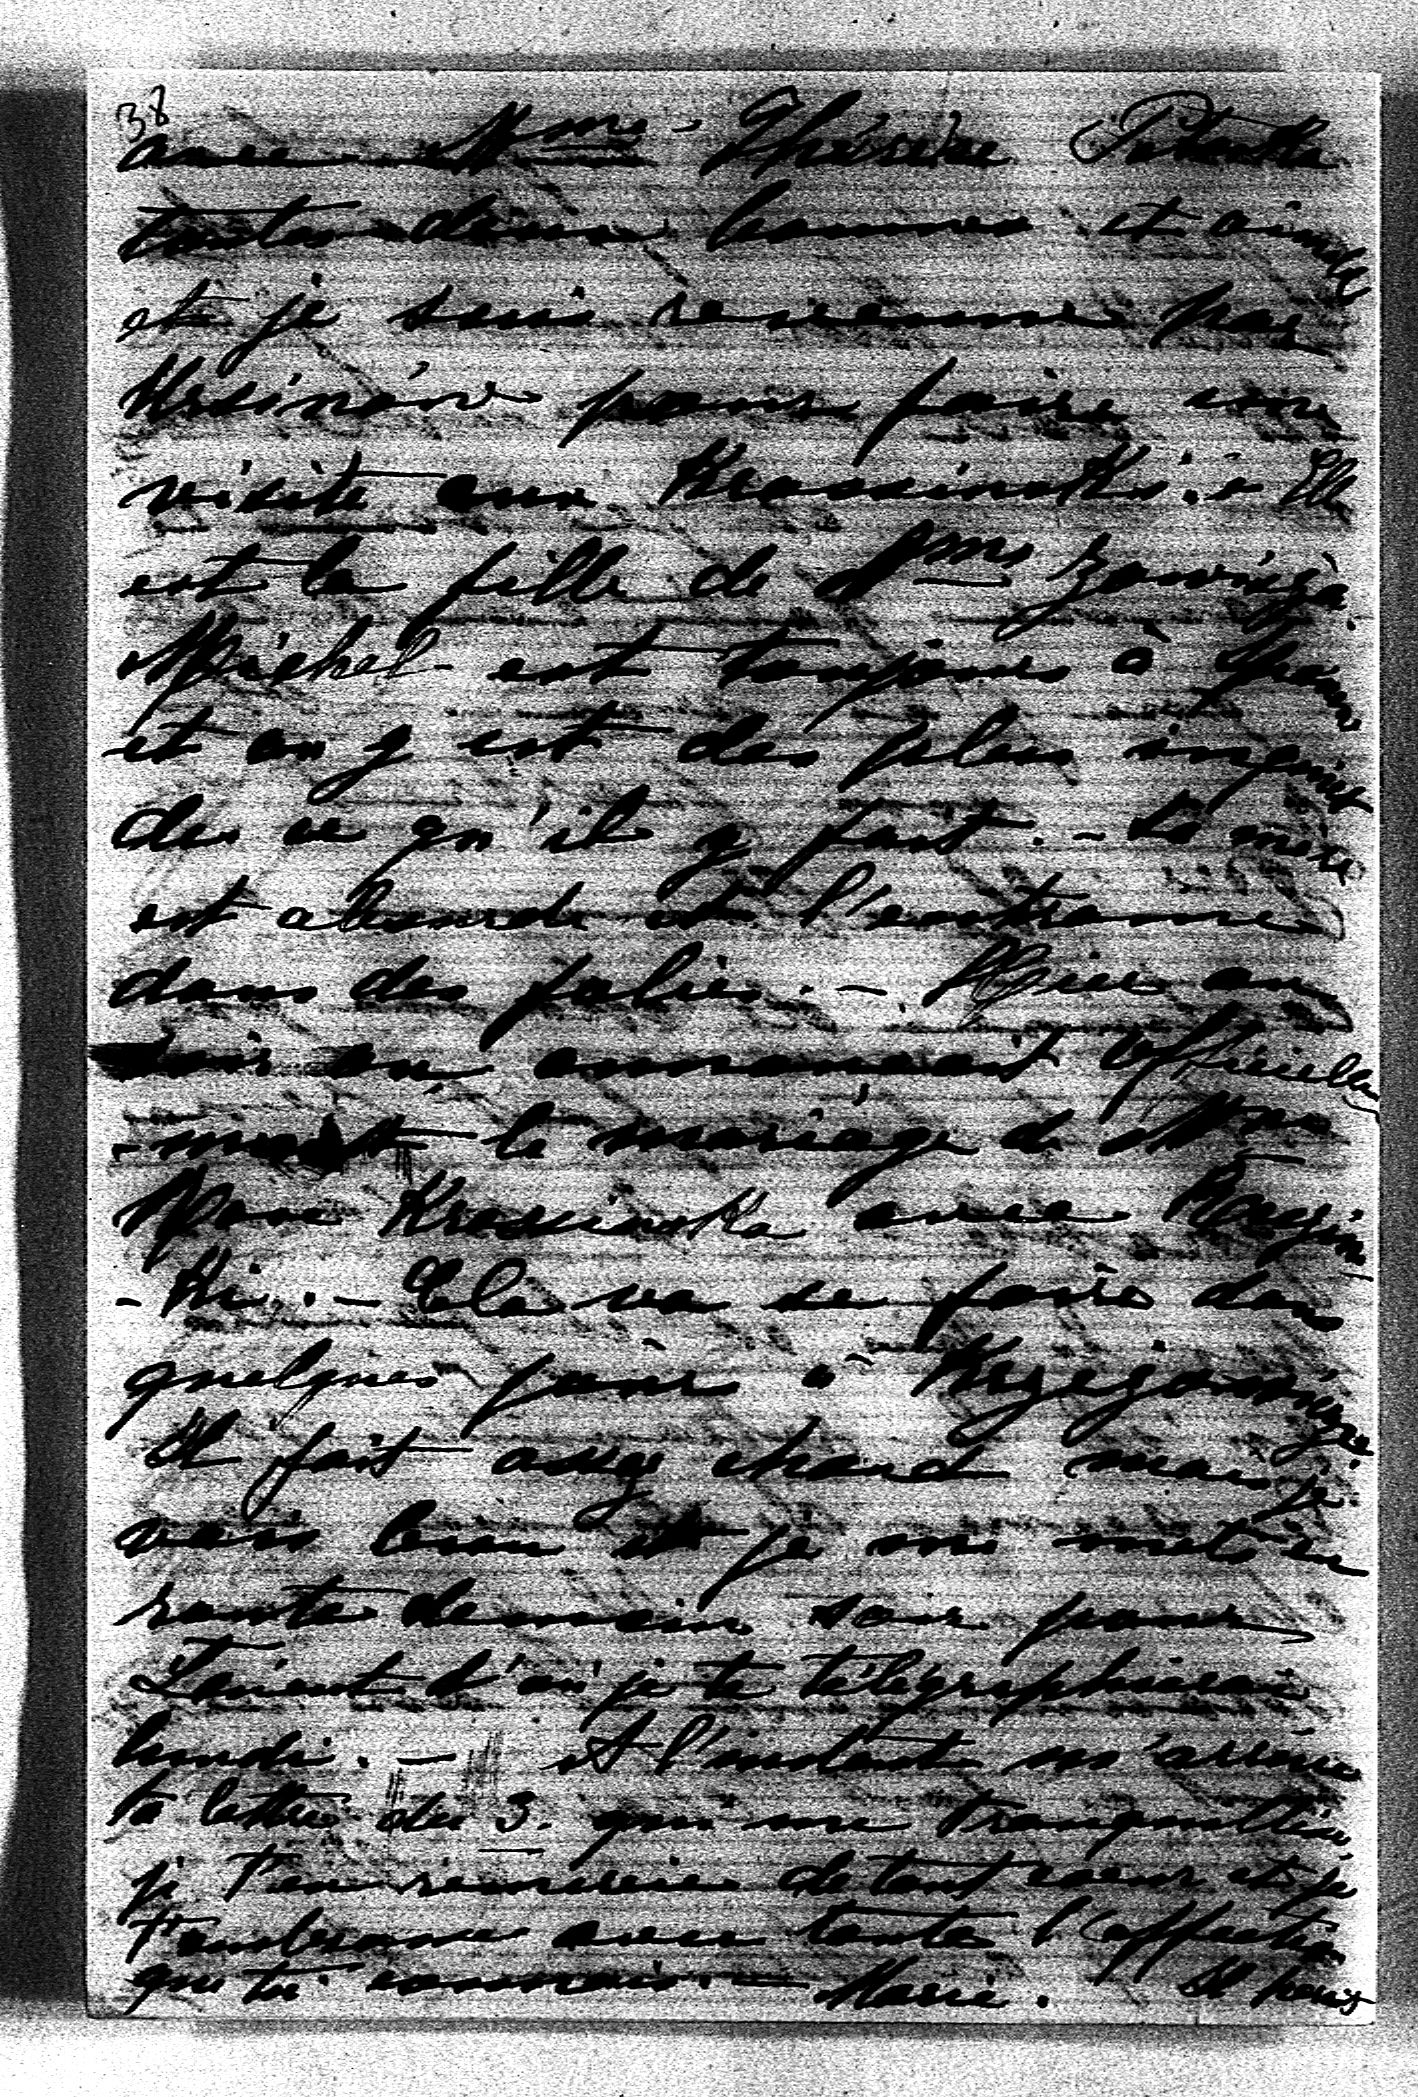 38
avec Mme Thérèse Potocka
toutes deux bonnes et aimables
et je suis revenue par
Ursinów pour faire une
visite aux Krassinski. - Elle
est la fille de Mme Zawisza.
Michel est toujours à
et on y est des plus inquiet
de ce qu'il y fait. - Sa mère
est absurde et l'entraine
dans des folies. - Hier au
soir on annoncait officielle
-ment le mariage de Mme
Krassinska avec
-ki. - Cela va se faire dans
quelques jours à
Il fait assez chaud mais je
vais bien et je me mets en
route demain soir pour
d'où je te télégraphierai
lundi. - A l'instant m'arrive
ta lettre du 3. qui me tranquillise
je t'en remercie de tout coeur et je
t'embrasse avec toute l'affection
que tu connais. - Marie. Il